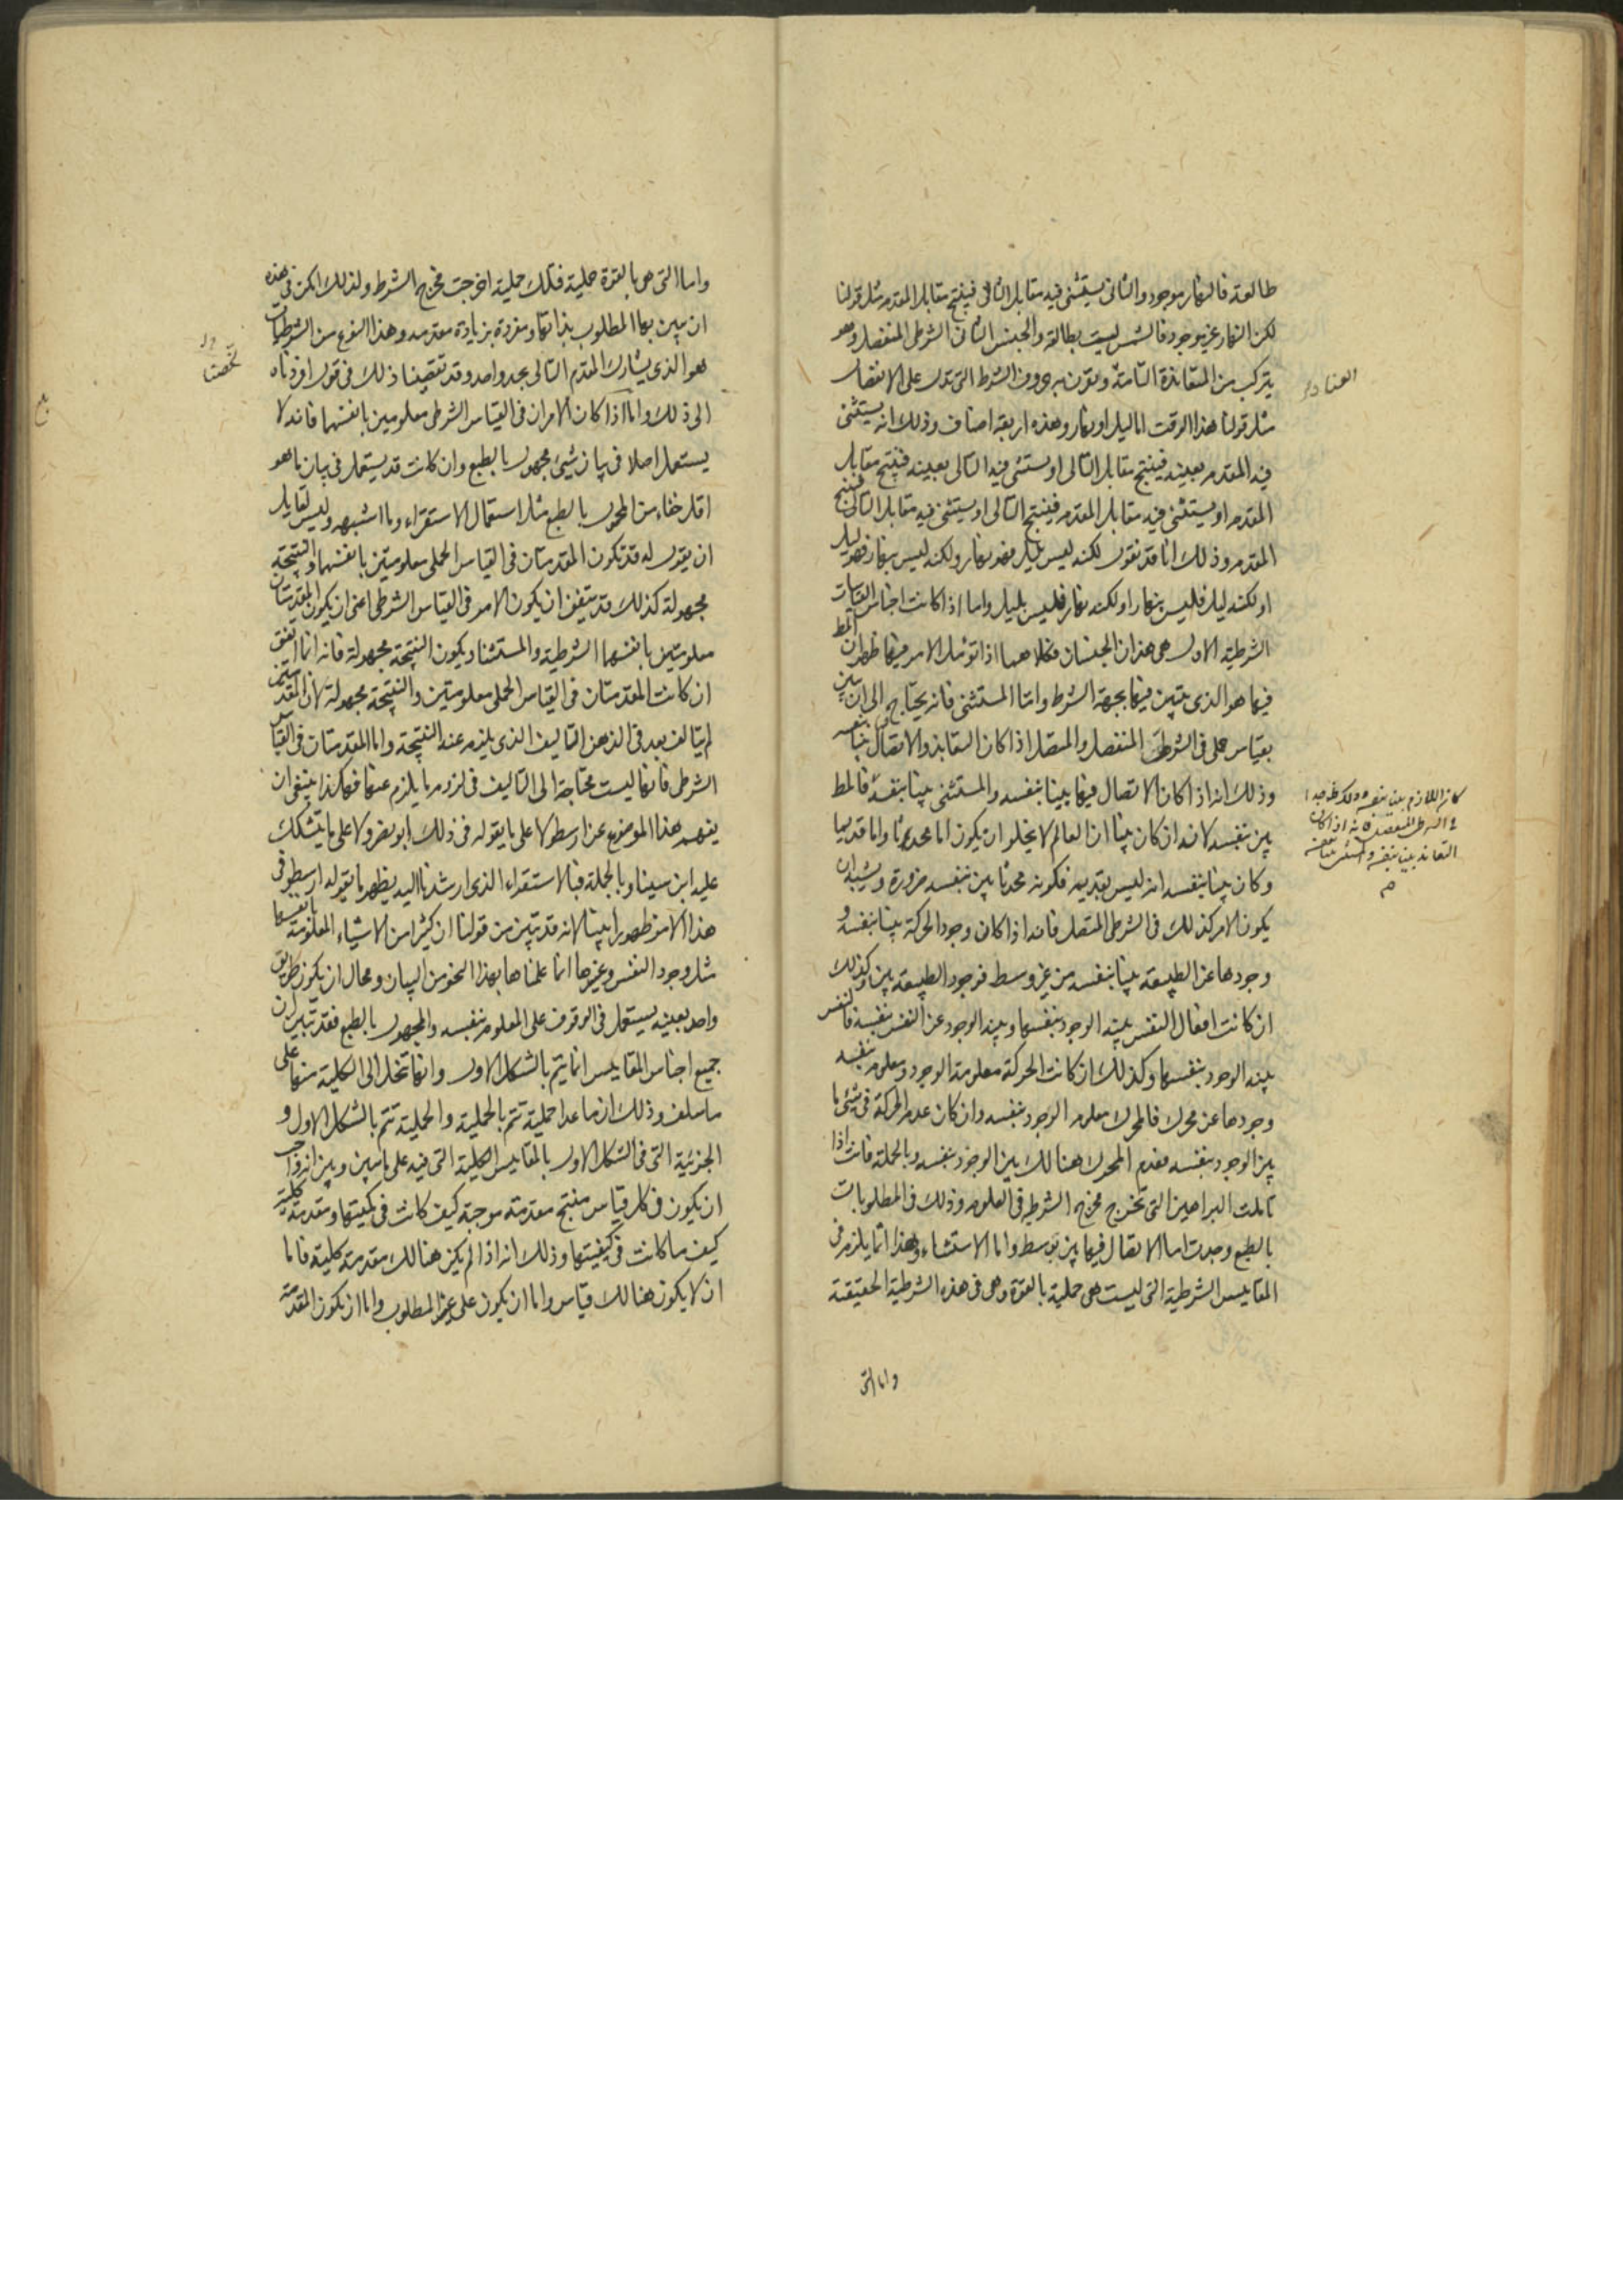 طالعة فالنهار موجود والثانى يستثنى فيه مقابل التالى فينتج مقابل المقدم مثل قولنا
لكن النهار غير موجود فالشمس ليست بطالعة والجنس الثانى الشرطى المنفصل وهو
يتركب من المتعاندة التامة ويقرن به حروف الشرط التى تدل على الانفصال
مثل قولنا هذا الوقت اما ليل او نهار وهذه اربعة اصناف وذلك انه يستثنى
فيه المقدم بعينه فينتج مقابل التالى او يستثنى فيه التالى بعينه فينتج مقابل
المقدم او يستثنى فيه مقابل المقدم فينتج التالى او يستثنى فيه مقابل التالى فينتج
المقدم وذلك انا قد نقول لكنه ليس بليل فهو نهار ولكنه ليس بنهار فهو ليل
او لكنه ليل فليس بنهار او لكنه نهار فليس بليل واما اذا كانت اجناس القياسات
الشرطية الاول هى هذان الجنسان فكلاهما اذا تومل الامر فيها ظهر ان المط
فيها هو الذى يتبين فيها بجهة الشرط واما المستثنى فانه يحتاج الى ان يبين
بقياس حملى فى الشرطى المنفصل والمتصل اذا كان التعاند والاتصال بينا بنفسه
وذلك انه اذا كان الاتصال فيها بينا بنفسه والمستثنى بينا بنفسه فالمط
بين بنفسه لانه ان كان بينا ان العالم لا يخلو ان يكون اما محدثا واما قديما
وكان بينا بنفسه انه ليس بقديم فكونه محدثا بين بنفسه ضرورة ويشبه ان
يكون الامر كذلك فى الشرطى المتصل فانه اذا كان وجود الحركة بينا بنفسه و
وجودها عن الطبيعة بينا بنفسه من غير وسط فوجود الطبيعة بين وكذلك
ان كانت افعال النفس بينة الوجود بنفسها وبينة الوجود عن النفس بنفسه فالنفس
بينة الوجود بنفسها وكذلك ان كانت الحركة معلومة الوجود ومعلوم بنفسه
وجودها عن محرك فالمحرك معلوم الوجود بنفسه وان كان عدم الحركة فى شئ ما
بين الوجود بنفسه فعدم المحرك هنالك بين الوجود بنفسه وبالجملة فانت اذا
تاملت البراهين التى تخرج مخرج الشرط فى العلوم وذلك فى المطلوبات
بالطبع وجدت اما الاتصال فيها بين بوسط واما الاستثناء وهذا انما يلزم فى
المقاييس الشرطية التى ليست هى حملية بالقوة وهى فى هذه الشرطية الحقيقية
واما التى
العناد
واما التى هى بالقوة حملية فتلك حملية اخرجت مخرج الشرط ولذلك امكن فى هذه
ان يبين بها المطلوب بذاتها ومفردة بزيادة مقدمه وهذا النوع من الشرطيات
هو الذى يشارك المقدم التالى بحد واحد وقد تقصينا ذلك فى قول افردناه
الى ذلك واما اذا كان الامران فى القياس الشرطى معلومين بانفسهما فانه لا
يستعمل اصلا فى بيان شئ مجهول بالطبع وان كانت قد يستعمل فى بيان ما هو
اقل خفاء من المجهول بالطبع مثل استعمال الاستقراء وما اشبهه وليس لقايل
ان يقول له قد تكون المقدمتان فى القياس الحملى معلومتين بانفسهما والنتيجة
مجهولة كذلك قد يتفق ان يكون الامر فى القياس الشرطى اعنى ان يكون المقدمتان
معلومتين بانفسهما الشرطية والمستثناة ويكون النتيجة مجهولة فانه انما اتفق
ان كانت المقدمتان فى القياس الحملى معلومتين والنتيجة مجهولة لان المقدمتين
لم يتالف بعد فى الذهن التاليف الذى يلزم عنه النتيجة واما المقدمتان فى القياس
الشرطى فانها ليست محتاجة الى التاليف فى لزوم ما يلزم عنها فهكذا ينبغى ان
يفهم هذا الموضع عن ارسطو لا على ما يقوله فى ذلك ابو نصر ولا على ما يتشكك
عليه ابن سينا وبالجملة فبالاستقراء الذى ارشدنا اليه يظهر ما يقوله ارسطو فى
هذا الامر ظهورا بينا لانه قد تبين من قولنا ان كثيرا من الاشياء المعلومة بانفسها
مثل وجود النفس وغيرها انما علمناها بهذا النحو من البيان ومحال ان يكون طريق
واحد بعينه يستعمل فى الوقوف على المعلوم بنفسه والمجهول بالطبع فقد تبين ان
جميع اجناس المقاييس انما يتم بالشكل الاول وانها تنحل الى الكلية منها على
ما سلف وذلك ان ما عدا حملية تتم بالحملية والحملية تتم بالشكل الاول و
الجزئية التى فى الشكل الاول بالمقاييس الكلية التى فيه على ما تبين وبين انه واجب
ان يكون فى كل قياس منتج مقدمة موجبة كيف كانت فى كميتها ومقدمة كلية
كيف ما كانت فى كيفيتها وذلك انه اذا لم يكن هنالك مقدمة كلية فاما
ان لا يكون هنالك قياس واما ان يكون على غير المطلوب واما ان يكون المقدمة